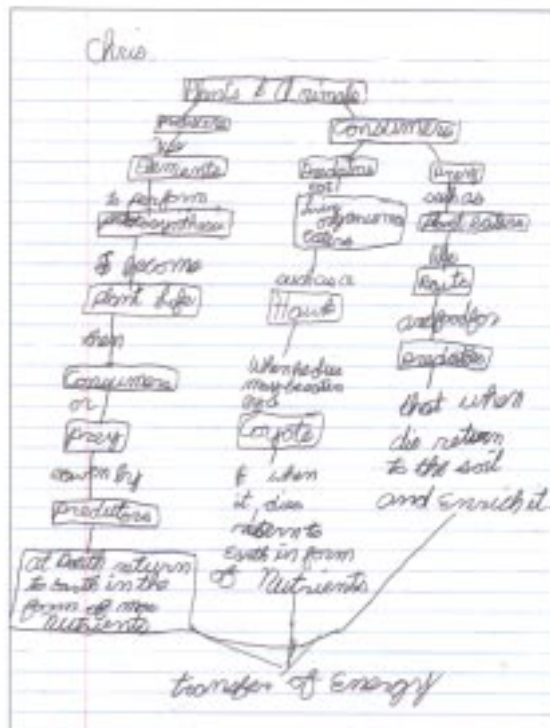 Chris
Plants & Animals
producers
Consumers
use
Elements
to perform
photosynthesis
& become
plant life
then
Consumers
or
prey
eaten by
predators
at Death return
to Earth in the
form of more
Nutrients
Predators
eat
living
eaters
such as a
Hawk
When he dies
may be eaten
by a
Coyote
& when
it dies
return to
Earth in form
of Nutrients
Prey
such as
plant eaters
like
are food for
predators
that when
die return
to the soil
and Enrich it
transfer of Energy